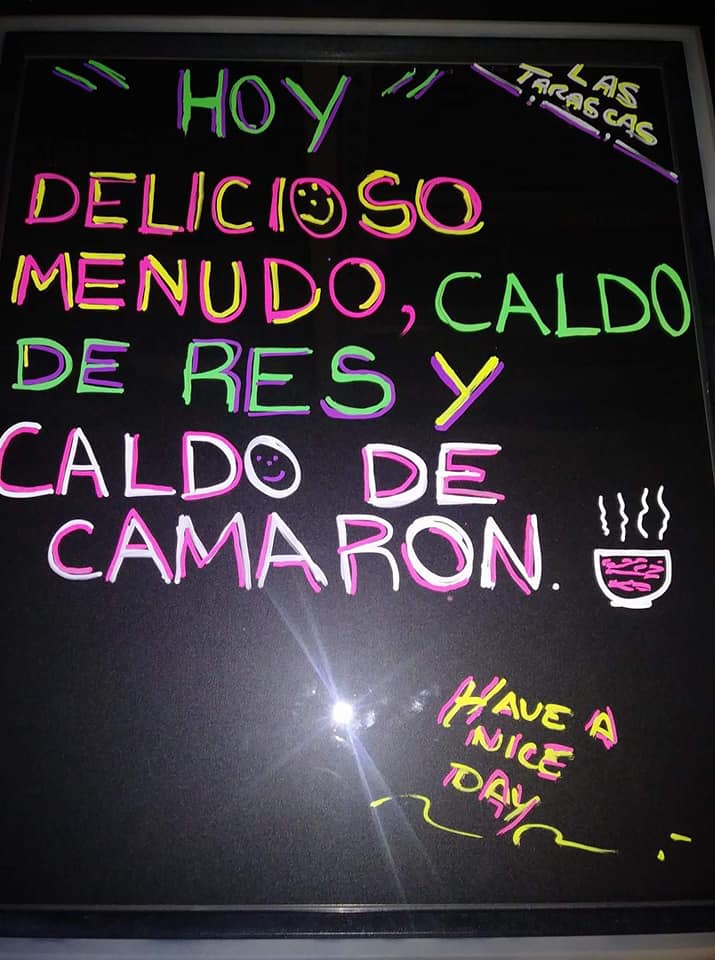 " HOY "
LAS
TARASCAS
DELICIOSO
MENUDO, CALDO
DE RES Y
CALDO DE
CAMARON.
HAVE A
NICE
DAY